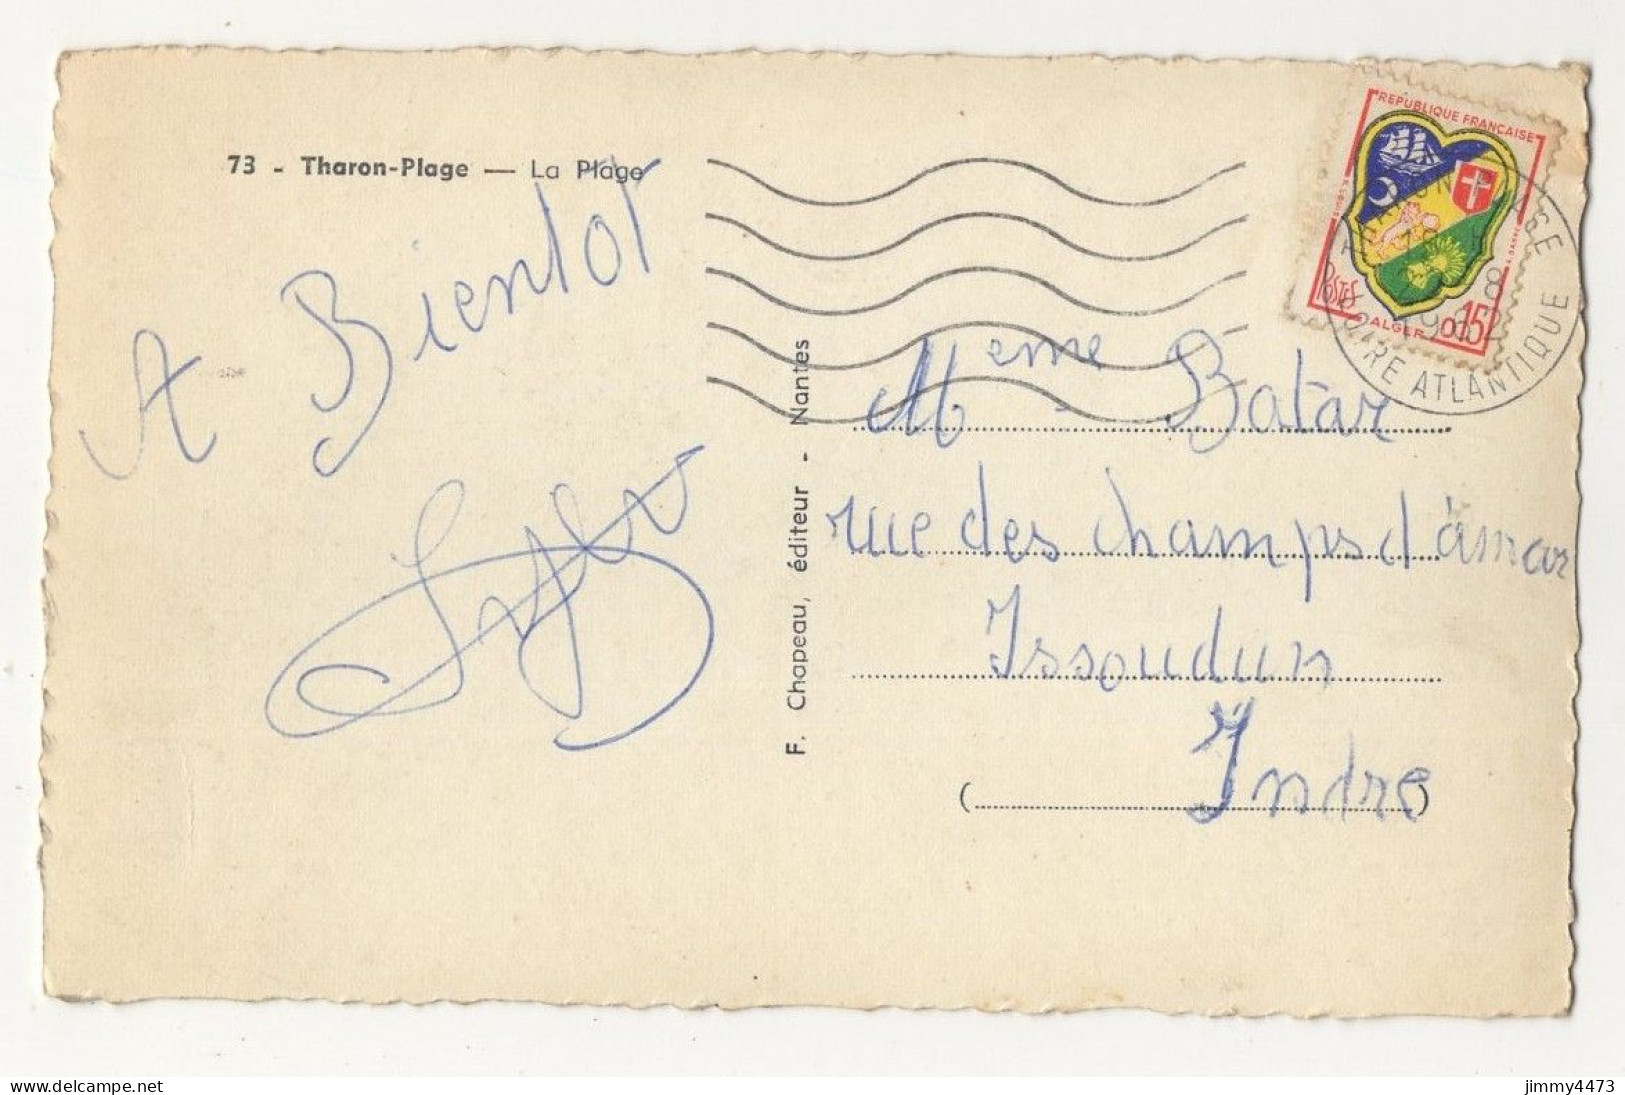 73 - Tharon-Plage — La Plage
A Bientot
F. Chapeau, éditeur - Nantes
REPUBLIQUE FRANÇAISE
POSTES
ALGER
0,15
THARON PLAGE
8
1962
LOIRE ATLANTIQUE
Meme Batar
rue des champs d'amour
Issoudun
Indre
www.delcampe.net
jimmy4473